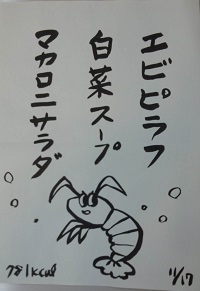 エビピラフ
白菜スープ
マカロニサラダ
781kcal
11/17